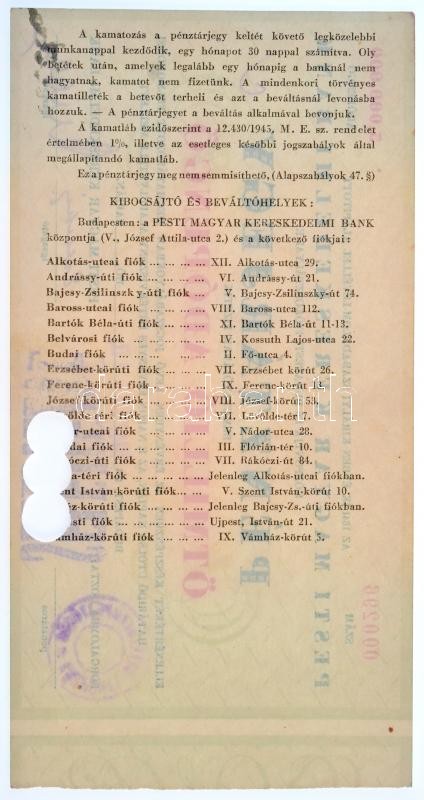 A kamatozás a pénztárjegy keltét követő legközelebbi
munkanappal kezdődik, egy hónapot 30 nappal számítva. Oly
betétek után, amelyek legalább egy hónapig a banknál nem
hagyatnak, kamatot nem fizetünk. A mindenkori törvényes
kamatilleték a betevőt terheli és azt a beváltásnál levonásba
hozzuk. — A pénztárjegyet a beváltás alkalmával bevonjuk.
A kamatláb ezidőszerint a 12.430/1945. M. E. sz. rendelet
értelmében 1%, illetve az esetleges későbbi jogszabályok által
megállapítandó kamatláb.
Ez a pénztárjegy meg nem semmisíthető, (Alapszabályok 47. §)
KIBOCSÁJTÓ ÉS BEVÁLTÓHELYEK:
Budapesten: a PESTI MAGYAR KERESKEDELMI BANK
központja (V., József Attila-utca 2.) és a következő fiókjai:
Alkotás-utcai fiók ... ... ... ... XII. Alkotás-utca 29.
Andrássy-úti fiók ... ... ... ... VI. Andrássy-út 21.
Bajcsy-Zsilinszky-úti fiók ... V. Bajcsy-Zsilinszky-út 74.
Baross-utcai fiók ... ... ... ... VIII. Baross-utca 112.
Bartók Béla-úti fiók ... ... ... XI. Bartók Béla-út 11-13.
Belvárosi fiók ... ... ... ... IV. Kossuth Lajos-utca 22.
Budai fiók ... ... ... ... ... II. Fő-utca 4.
Erzsébet-körúti fiók ... ... ... VII. Erzsébet körút 26.
Ferenc-körúti fiók ... ... ... IX. Ferenc-körút 14.
József-körúti fiók ... ... ... VIII. József-körút 53.
téri fiók ... ... ... VII. Lövölde-tér 7.
utcai fiók ... ... ... V. Nádor-utca 28.
dai fiók ... ... ... III. Flórián-tér 10.
úti fiók ... ... ... VII. Rákóczi-út 84.
téri fiók ... ... ... Jelenleg Alkotás-utcai fiókban.
ent István-körúti fiók ... ... V. Szent István-körút 10.
körúti fiók ... ... ... Jelenleg Bajcsy-Zs.-úti fiókban.
sti fiók ... ... ... ... Ujpest, István-út 21.
ámház-körúti fiók ... ... ... IX. Vámház-körút 5.
darabanth
000296